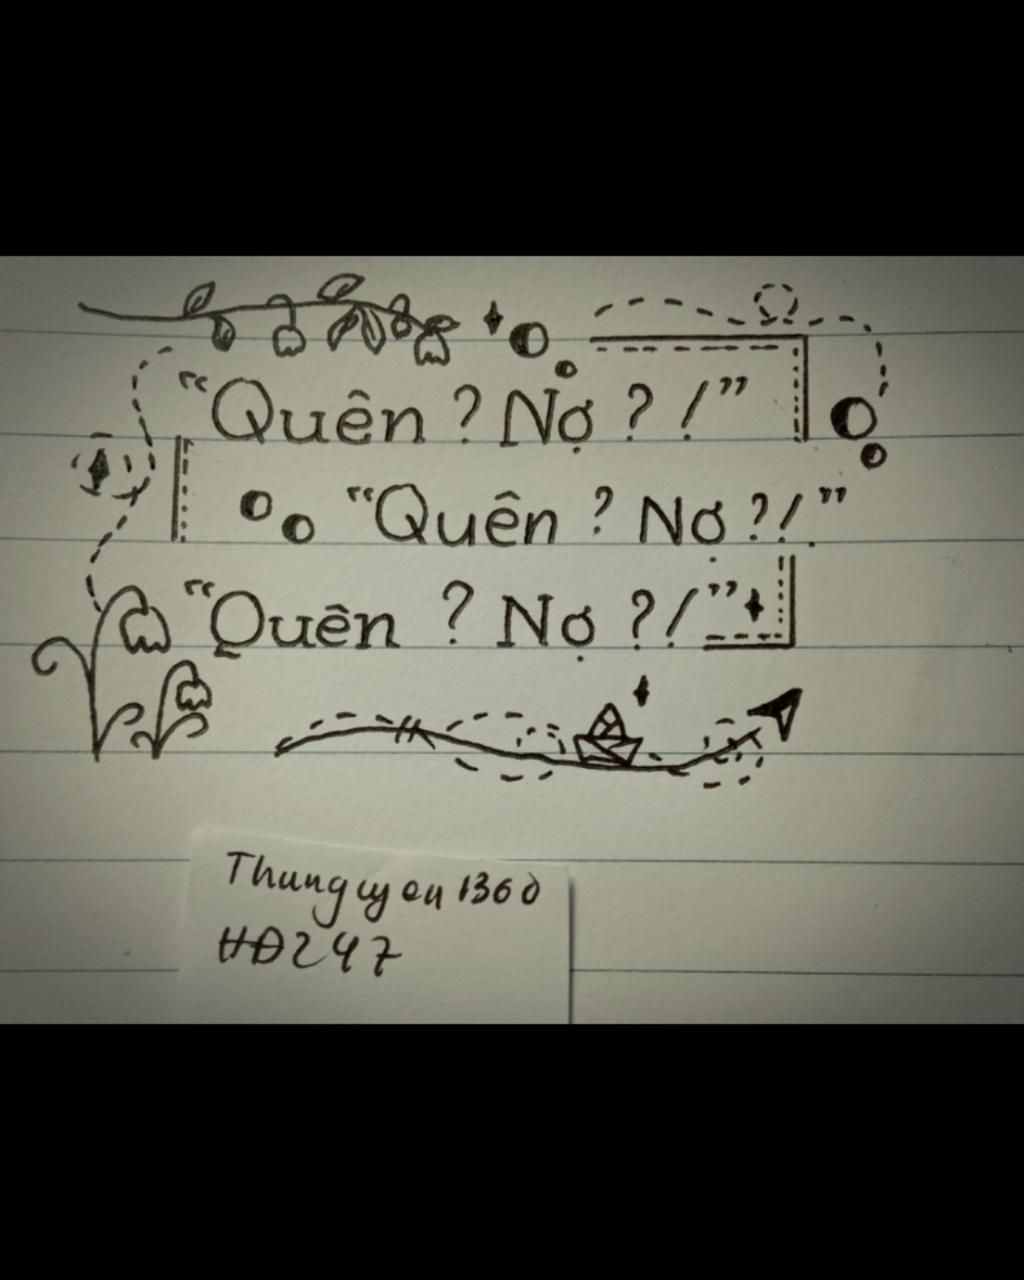 “Quên ? Nợ ? !”
“Quên ? Nợ ?!”
“Quên ? Nợ ?!”
Thunguyen1360
HĐ247